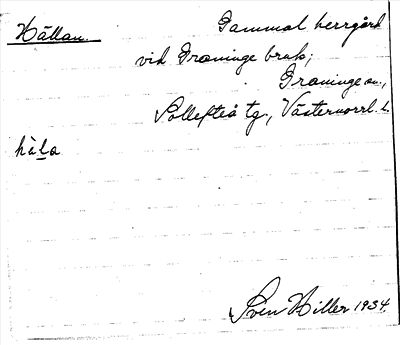 Hällan. Gammal herrgård
vid Graninge bruk;
Graninge sn,
Sollefteå tg, Västernorrl. l.
hàla
Sven Hiller 1934.